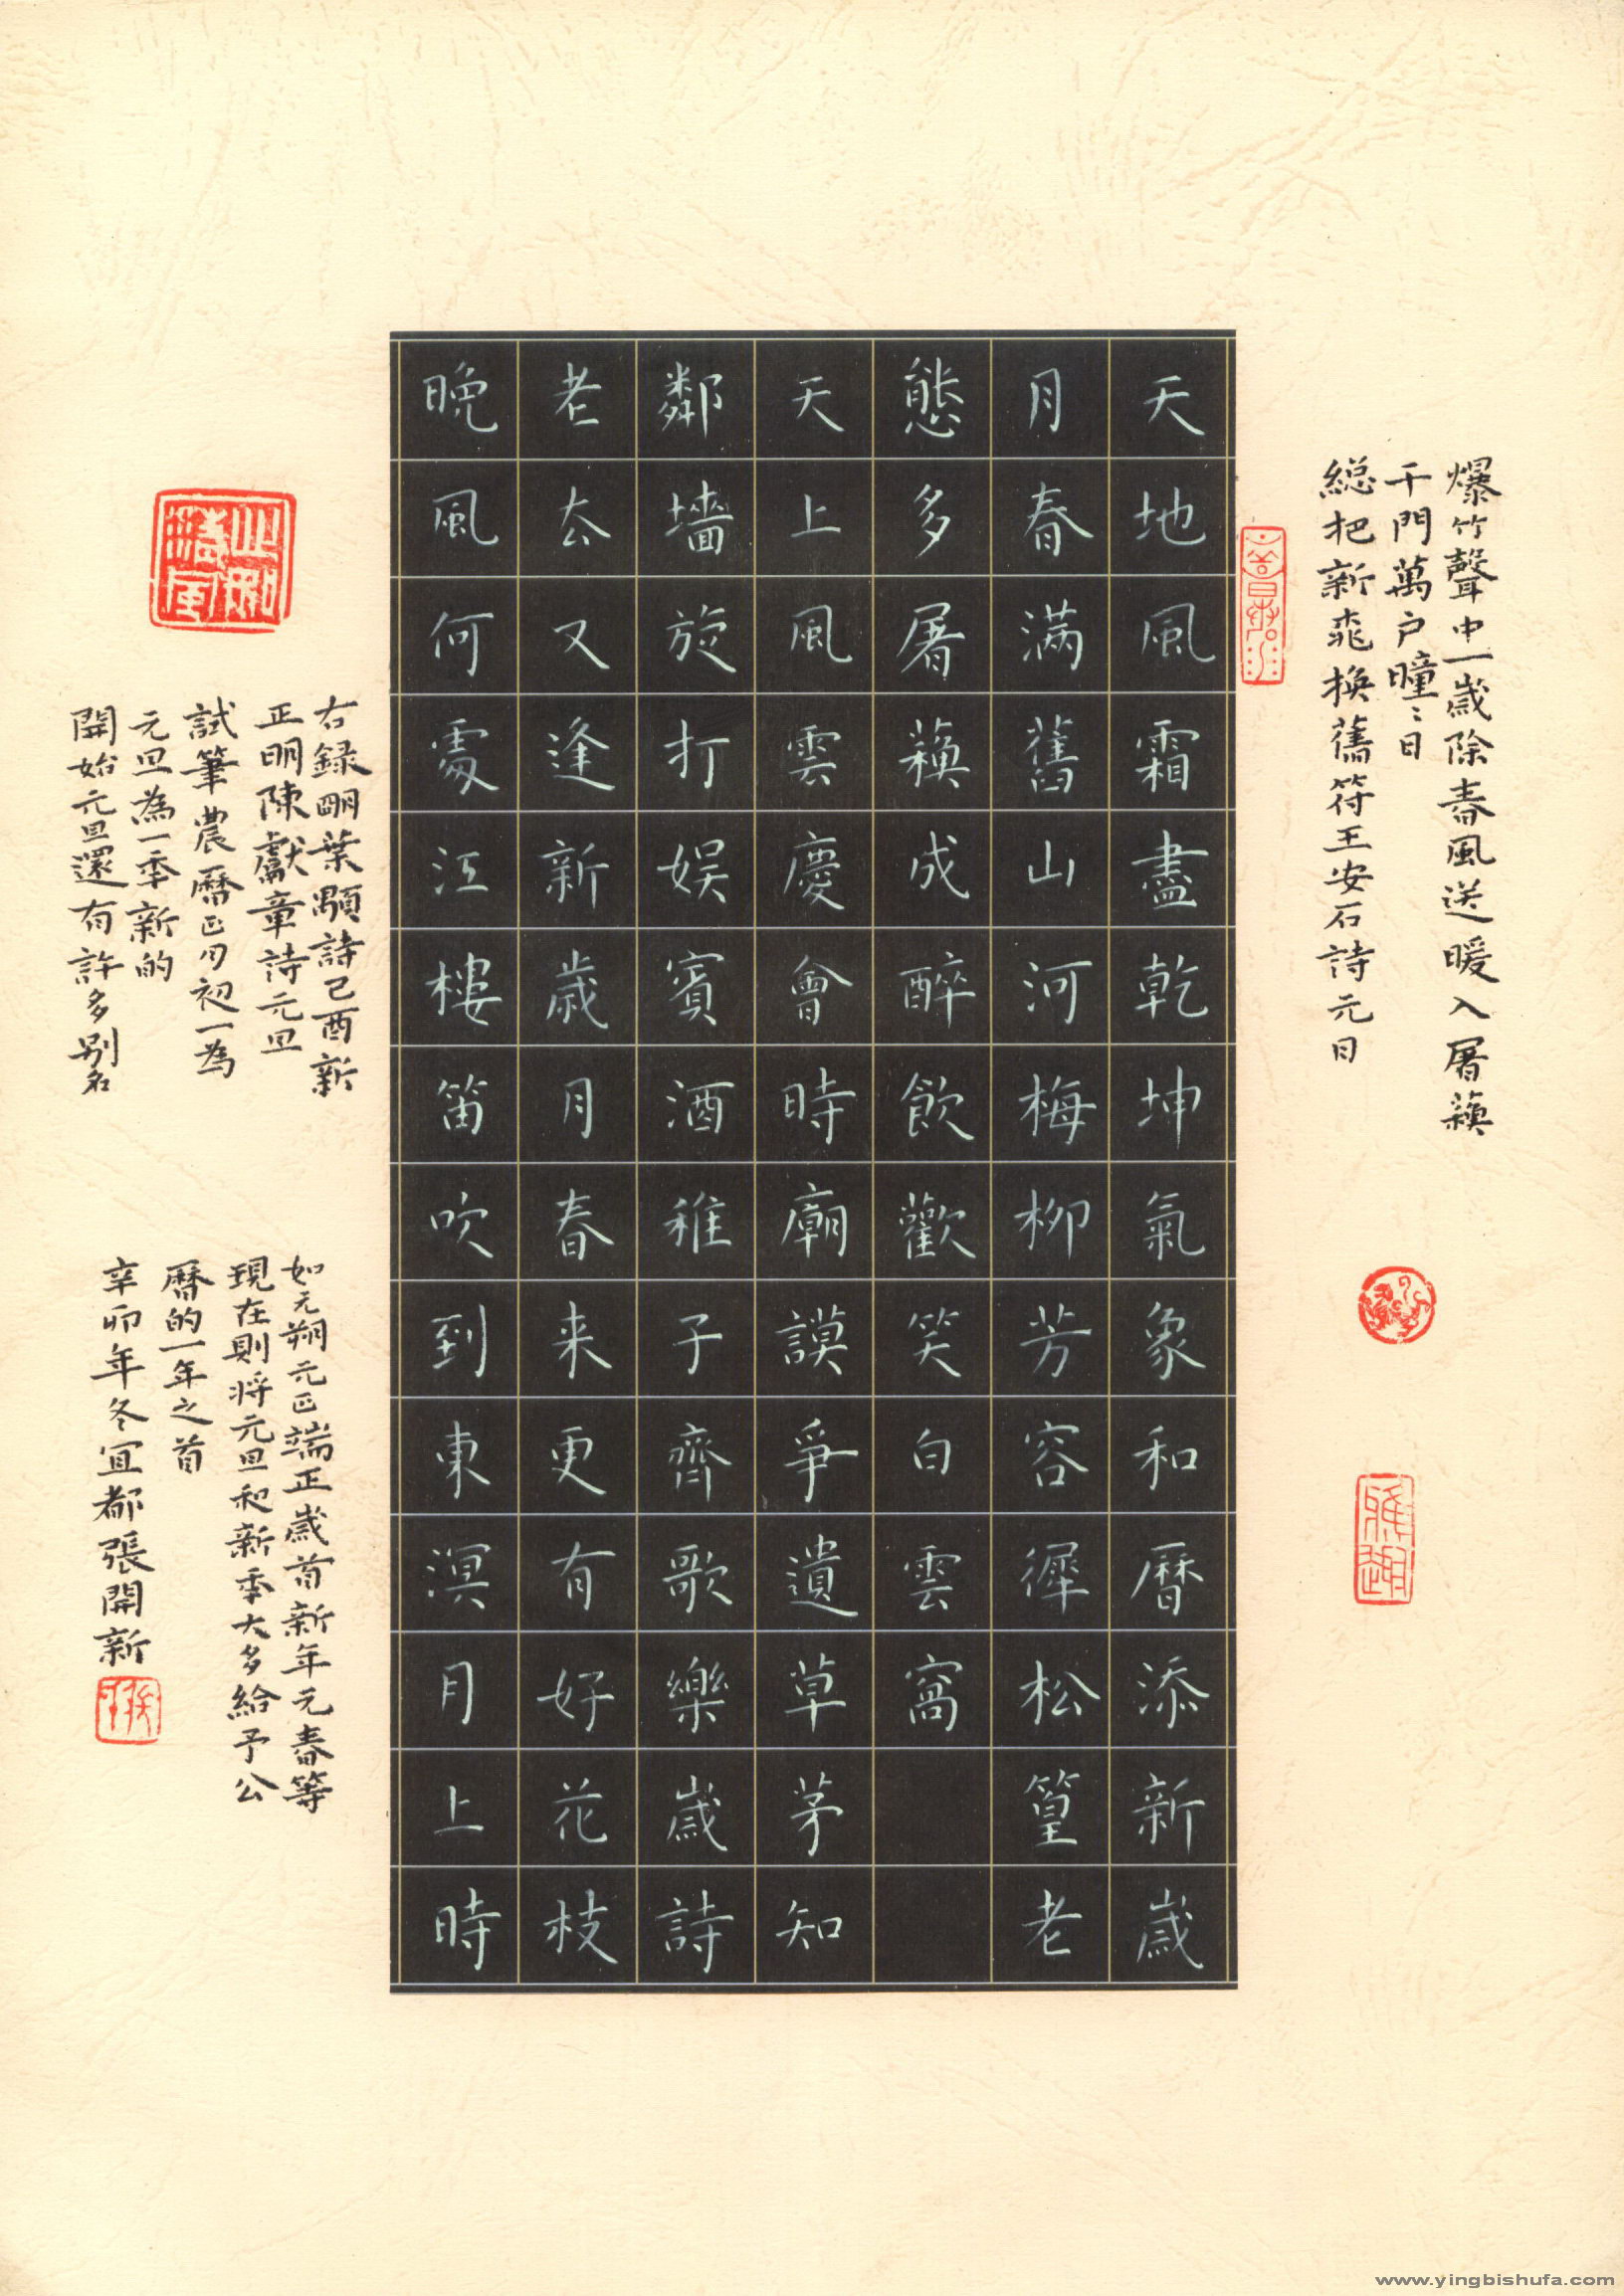 爆竹聲中一歲除春風送暖入屠蘓
千門萬户曈〻日
総把新桃換舊符王安石詩元日
天地風霜盡乾坤氣象和曆添新歲
月春滿舊山河梅柳芳容穉松篁老
態多屠蘓成醉飲歡笑白雲窩
天上風雲慶會時廟謨爭遺草茅知
鄰墻旋打娛賓酒稚子齊歌樂歲詩
老去又逢新歲月春来更有好花枝
晩風何處江樓笛吹到東溟月上時
右録明葉顒詩己酉新
正明陳獻章詩元旦
試筆農曆正月初一為
元旦為一季新的
開始元旦還有許多别名
如元朔元正端正歲首新年元春等
現在則将元旦和新季大多給予公
曆的一年之首
辛卯年冬宜都張開新
www.yingbishufa.com